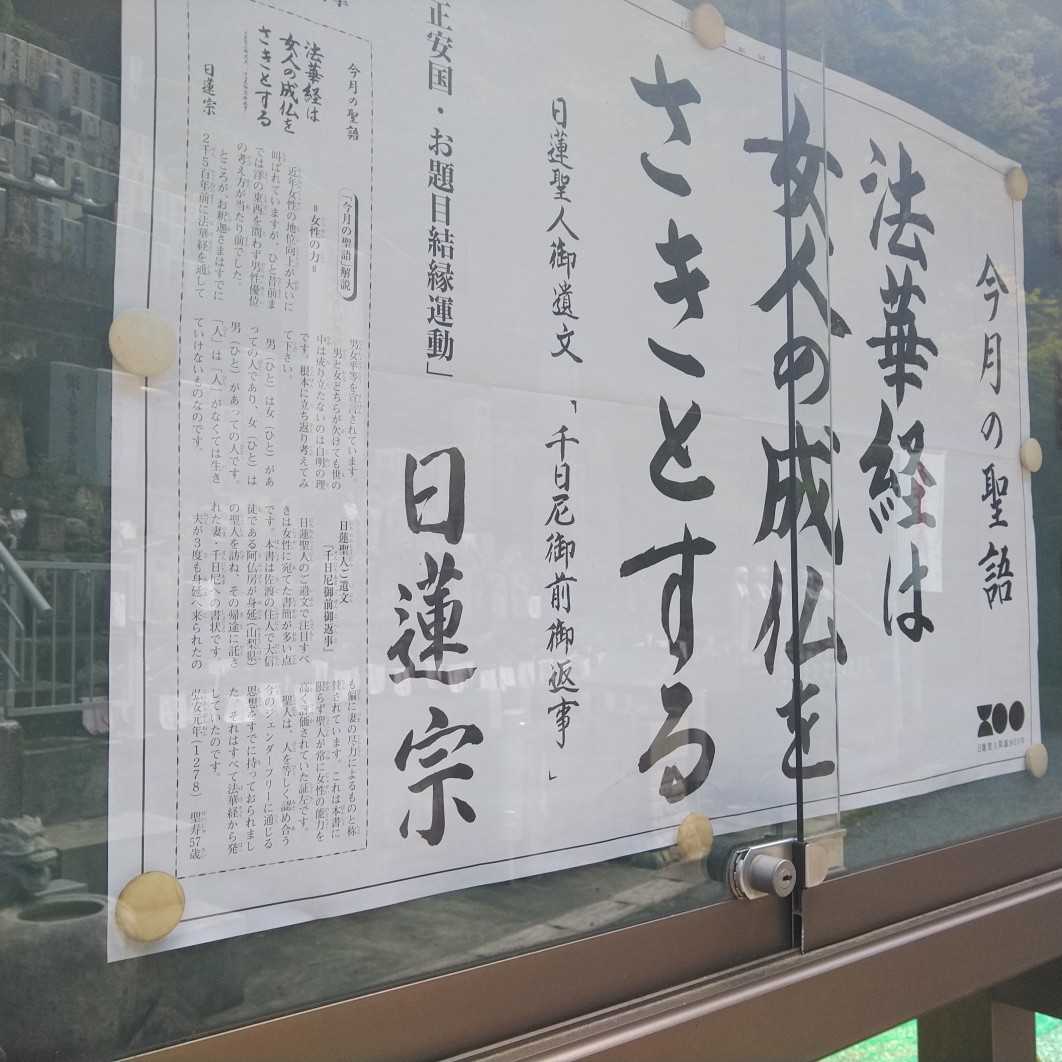 今月の聖語
法華経は
女人の成仏を
さきとする
日蓮聖人御遺文「千日尼御前御返事」
正安国・お題目結縁運動」
日蓮宗
800
今月の聖語
法華経は
女人の成仏を
さきとする
日蓮宗
「今月の聖語」解説
=女性の力=
近年女性の地位向上が大いに
叫ばれていますが、ひと昔前ま
では洋の東西を問わず男性優位
の考え方が当たり前でした。
ところがお釈迦さまはすでに
2千5百年前に法華経を通して
男女平等を宣言されています。
男と女どちらが欠けても世の
中は成り立たないのは自明の理
です。根本に立ち返り考えてみ
て下さい。
男(ひと)は女(ひと)があ
っての人であり、女(ひと)は
男(ひと)があっての人です。
「人」は「人」がなくては生き
ていけないものなのです。
日蓮聖人ご遺文
『千日尼御前御返事』
日蓮聖人のご遺文で注目すべ
きは女性に宛てた書簡が多い点
です。本書は佐渡の住人で大信
徒である阿仏房が身延(山梨県)
の聖人を訪ね、その帰途に託さ
れた妻・千日尼への書状です。
夫が3度も身延へ来られたの
も偏に妻の尽力によるものと称
賛されています。これは本書に
限らず聖人が常に女性の能力を
高く評価されていた証左です。
聖人は、人を等しく認め合う
今のジェンダーフリーに通じる
思想をすでに持っておられまし
た。それはすべて法華経から発
していたのです。
弘安元年(1278) 聖寿57歳